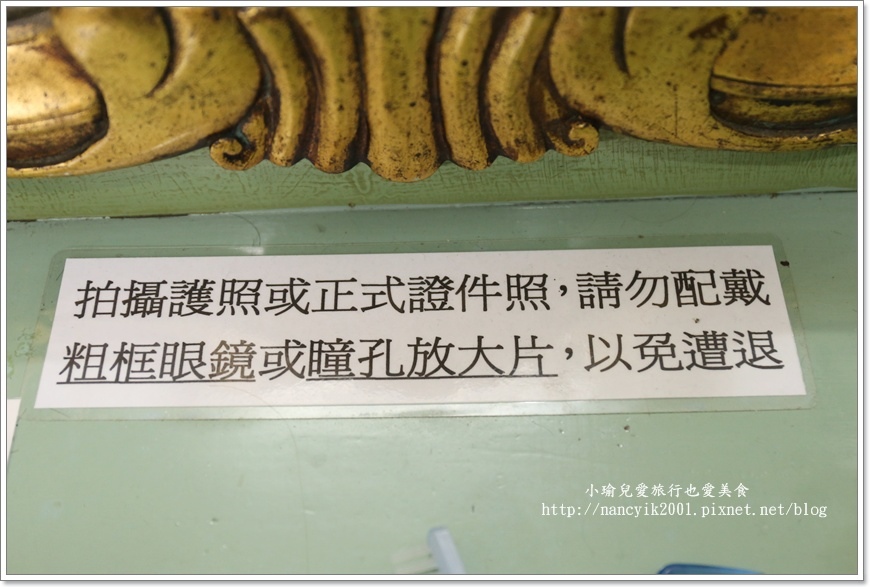 拍攝護照或正式證件照，請勿配戴
粗框眼鏡或瞳孔放大片，以免遭退
小瑜兒愛旅行也愛美食
http://nancyik2001.pixnet.net/blog